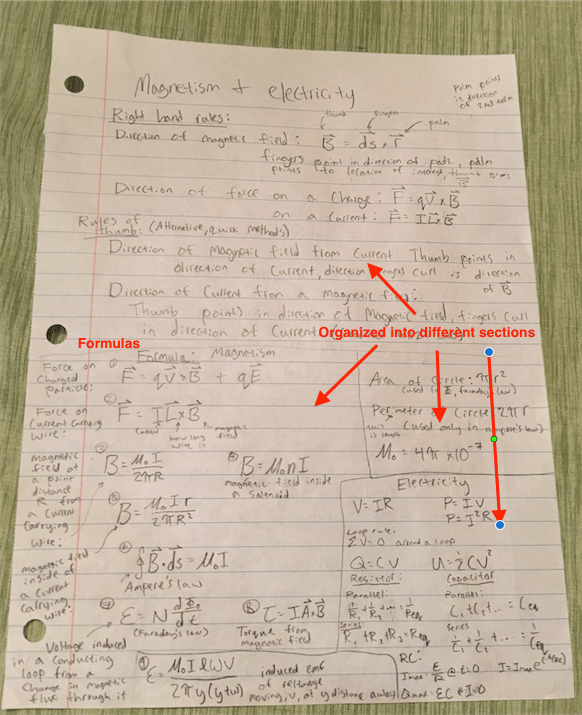 Magnetism + electricity
Palm points
in direction
of 2nd term
Right hand rules:
thumb fingers palm
Direction of magnetic field: B⃗ = d⃗s × r⃗
fingers point in direction of path, palm
points to location of interest, thumb gives B⃗
Direction of force on a Charge: F⃗ = qV⃗ × B⃗
on a Current: F⃗ = IL⃗ × B⃗
Rules of
thumb: (Alternative, quick methods)
Direction of Magnetic field from Current: Thumb points in
direction of Current, direction fingers curl is direction
of B⃗
Direction of Current from a magnetic field:
Thumb points in direction of Magnetic field, fingers curl
in direction of Current
Organized into different sections
Formulas
Formula: Magnetism
Force on
Charged
particle:
① F⃗ = qV⃗ × B⃗ + qE⃗
Force on
Current Carrying
Wire:
② F⃗ = IL⃗ × B⃗
Current
how long
wire is
magnetic
field
magnetic
field at
a point
distance
R from
a Current
Carrying
wire:
B = μ₀I / 2πR
B = μ₀nI
magnetic field inside
a Solenoid
magnetic field
inside of
a Current
Carrying
wire:
B = μ₀Ir / 2πR²
∮B⃗·d⃗s = μ₀I
Ampere's law
ε = N dΦ/dt
(Faraday's law)
⑧ τ = IA⃗·B⃗
Torque from
Magnetic field
Voltage induced
in a conducting
loop from a
Change in magnetic
flux through it
⑨ ε = μ₀IlwV / 2πy(y+w)
induced emf
of rectangle
moving, V, at y distance away
Area of circle: πr²
(used to Φ, faraday's law)
Perimeter of Circle: 2πr
(used only in ampere's law)
is length
μ₀ = 4π × 10⁻⁷
Electricity
V = IR P = IV
P = I²R
Loop rule:
ΣV = 0 around a loop
Q = CV U = ½CV²
Resistor: Capacitor
Parallel: Parallel:
1/R₁ + 1/R₂ + ... = 1/Req C₁ + C₂ + ... = Ceq
Series Series
R₁ + R₂ + R₃ = Req 1/C₁ + 1/C₂ + ... = 1/Ceq
RC:
Imax = E/R @ t=0 I = Imax e^(-t/RC)
Qmax = EC @ I=0